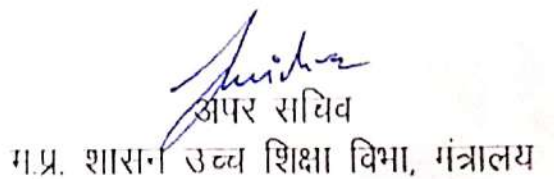 अपर सचिव
म.प्र. शासन उच्च शिक्षा विभा, मंत्रालय